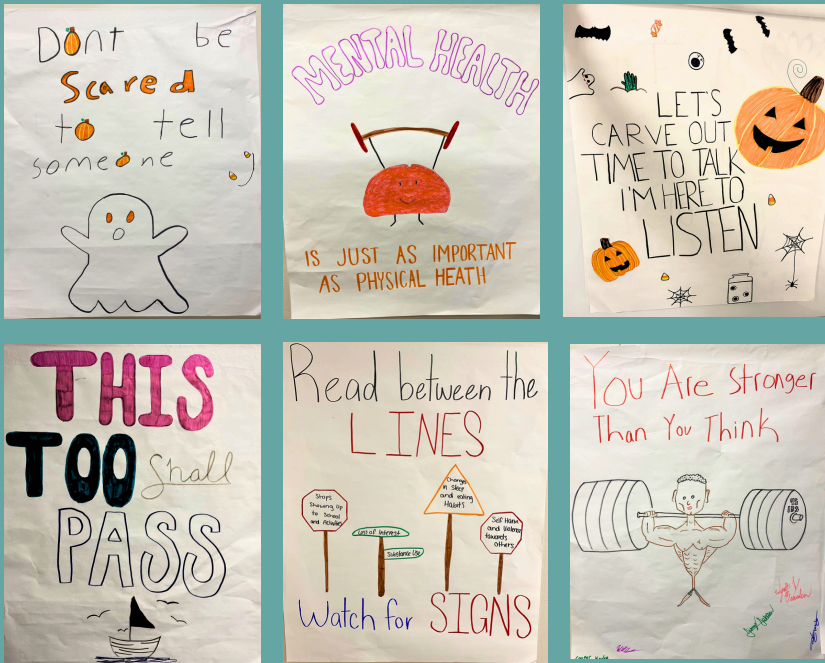 Dont be
Scared
to tell
someone
MENTAL HEALTH
IS JUST AS IMPORTANT
AS PHYSICAL HEATH
LET'S
CARVE OUT
TIME TO TALK
I'M HERE TO
LISTEN
THIS
TOO Shall
PASS
Read between the
LINES
Stops
Showing Up
to School
and Activities
Loss of Interest
Substance Use
Changes
in Sleep
and eating
Habits
Self Harm
and Violence
towards
others
Watch for SIGNS
You Are Stronger
Than You Think
LBS